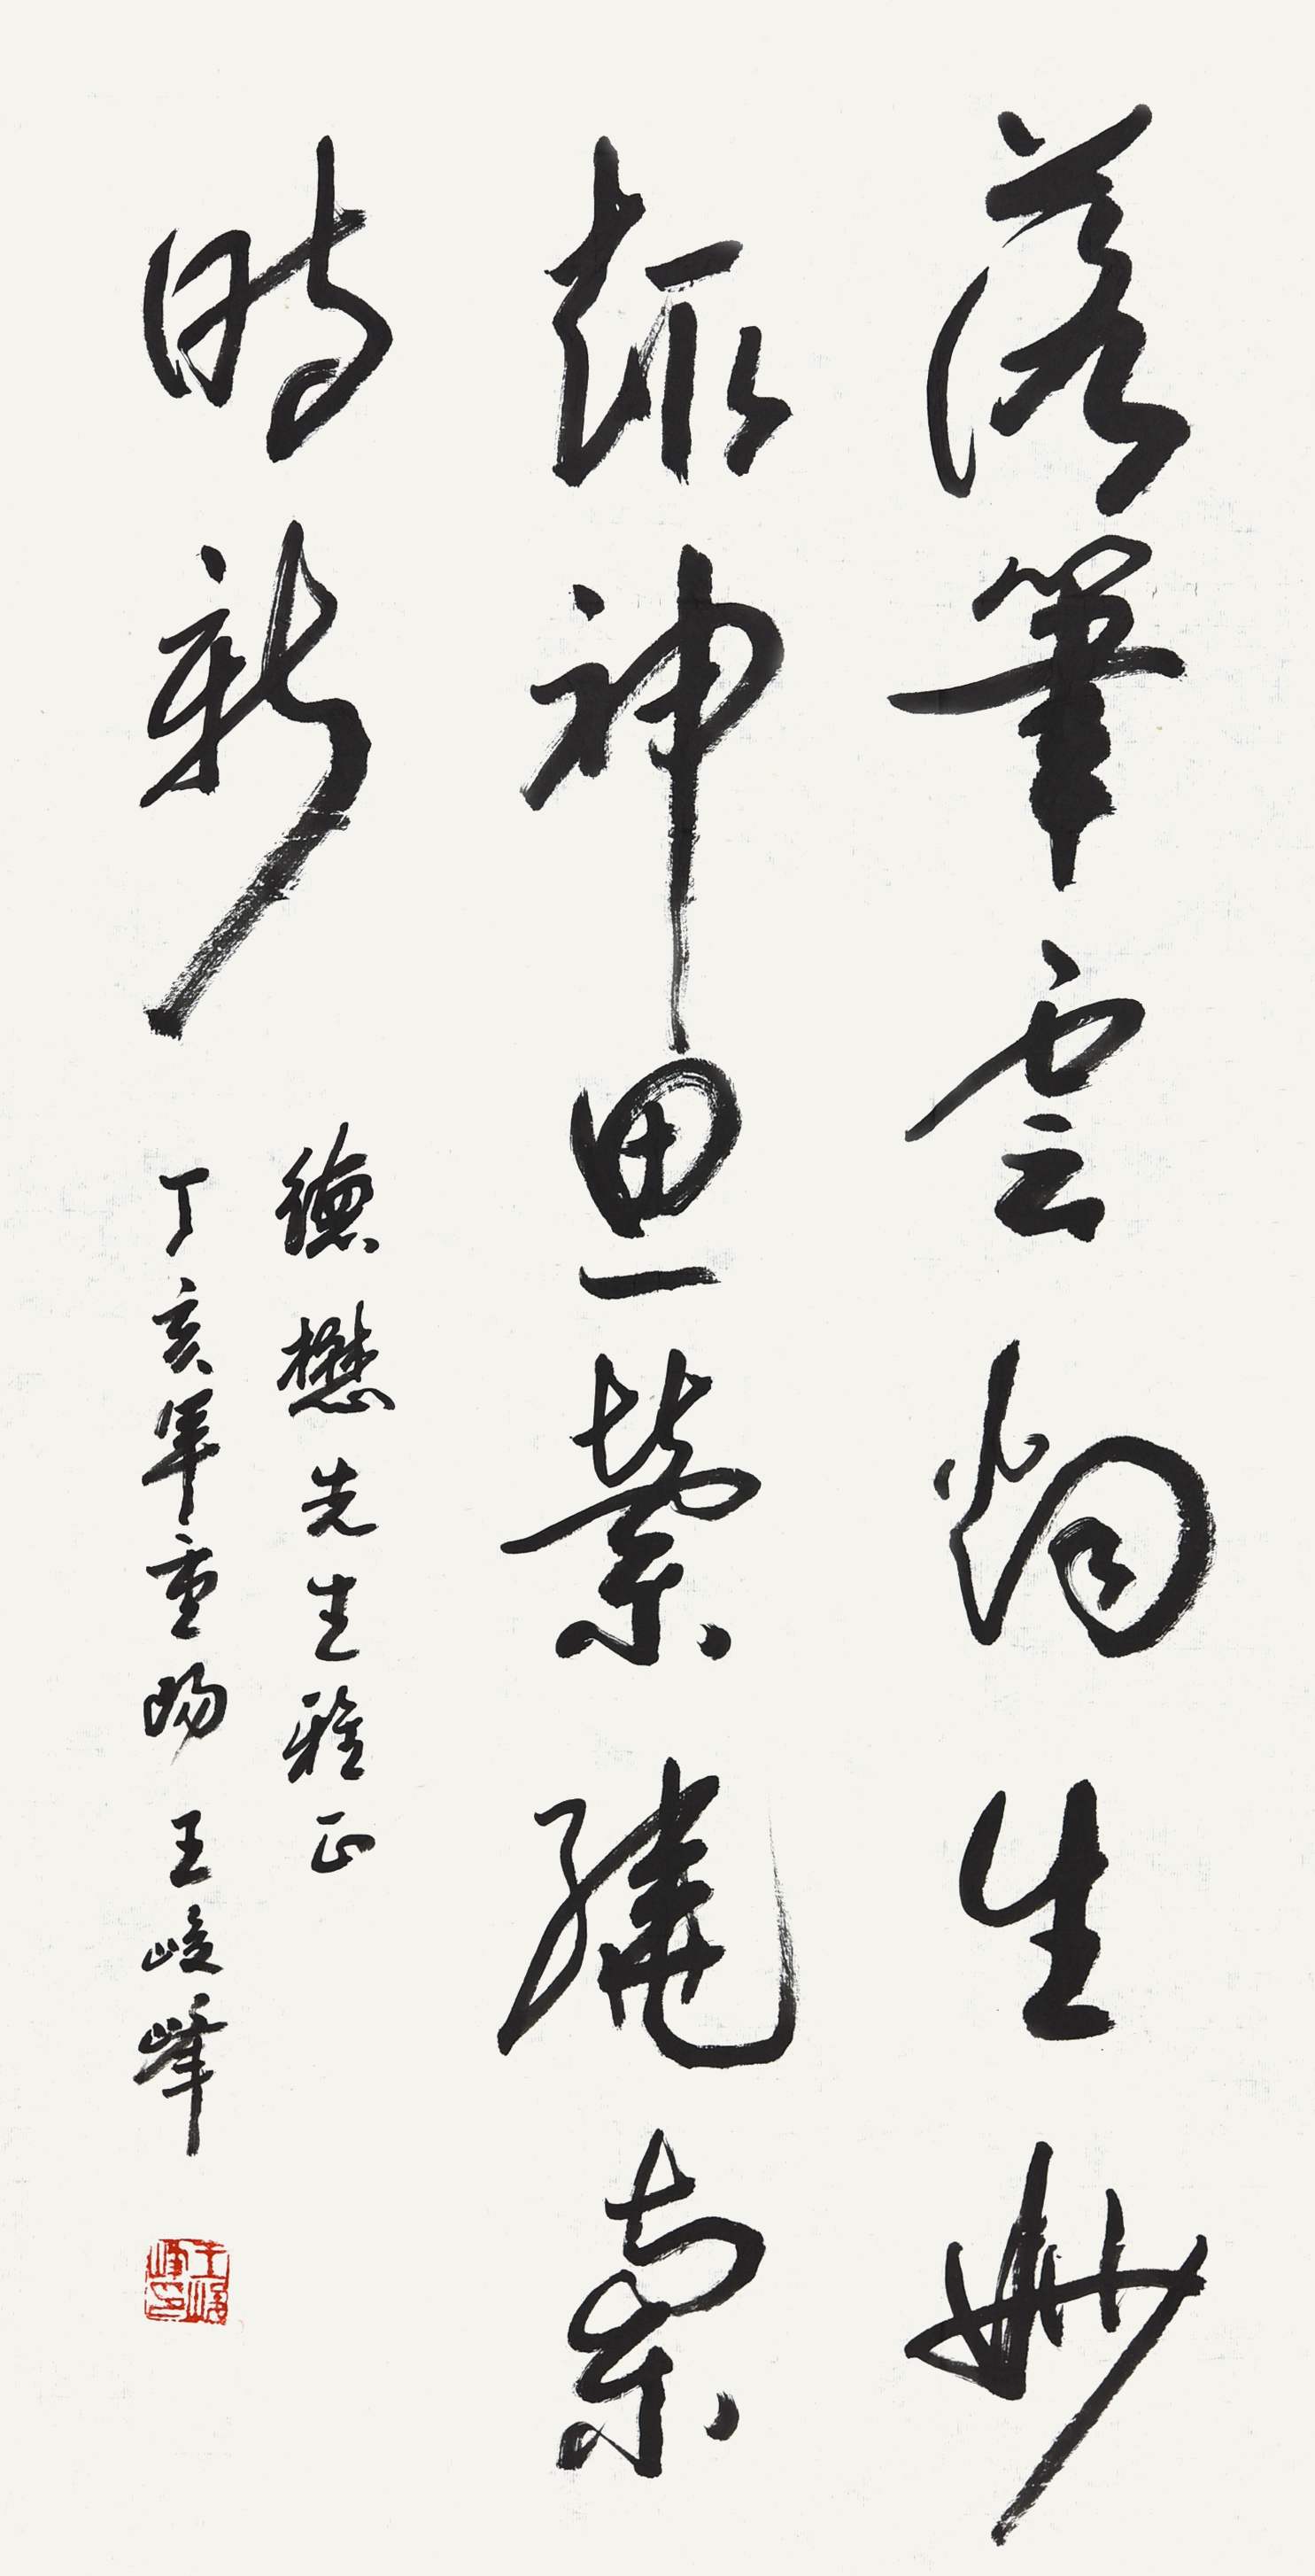 落筆雲烟生妙
趣神思縈繞索
時新
德懋先生雅正
丁亥年重陽 王峻峰
王峻峰印